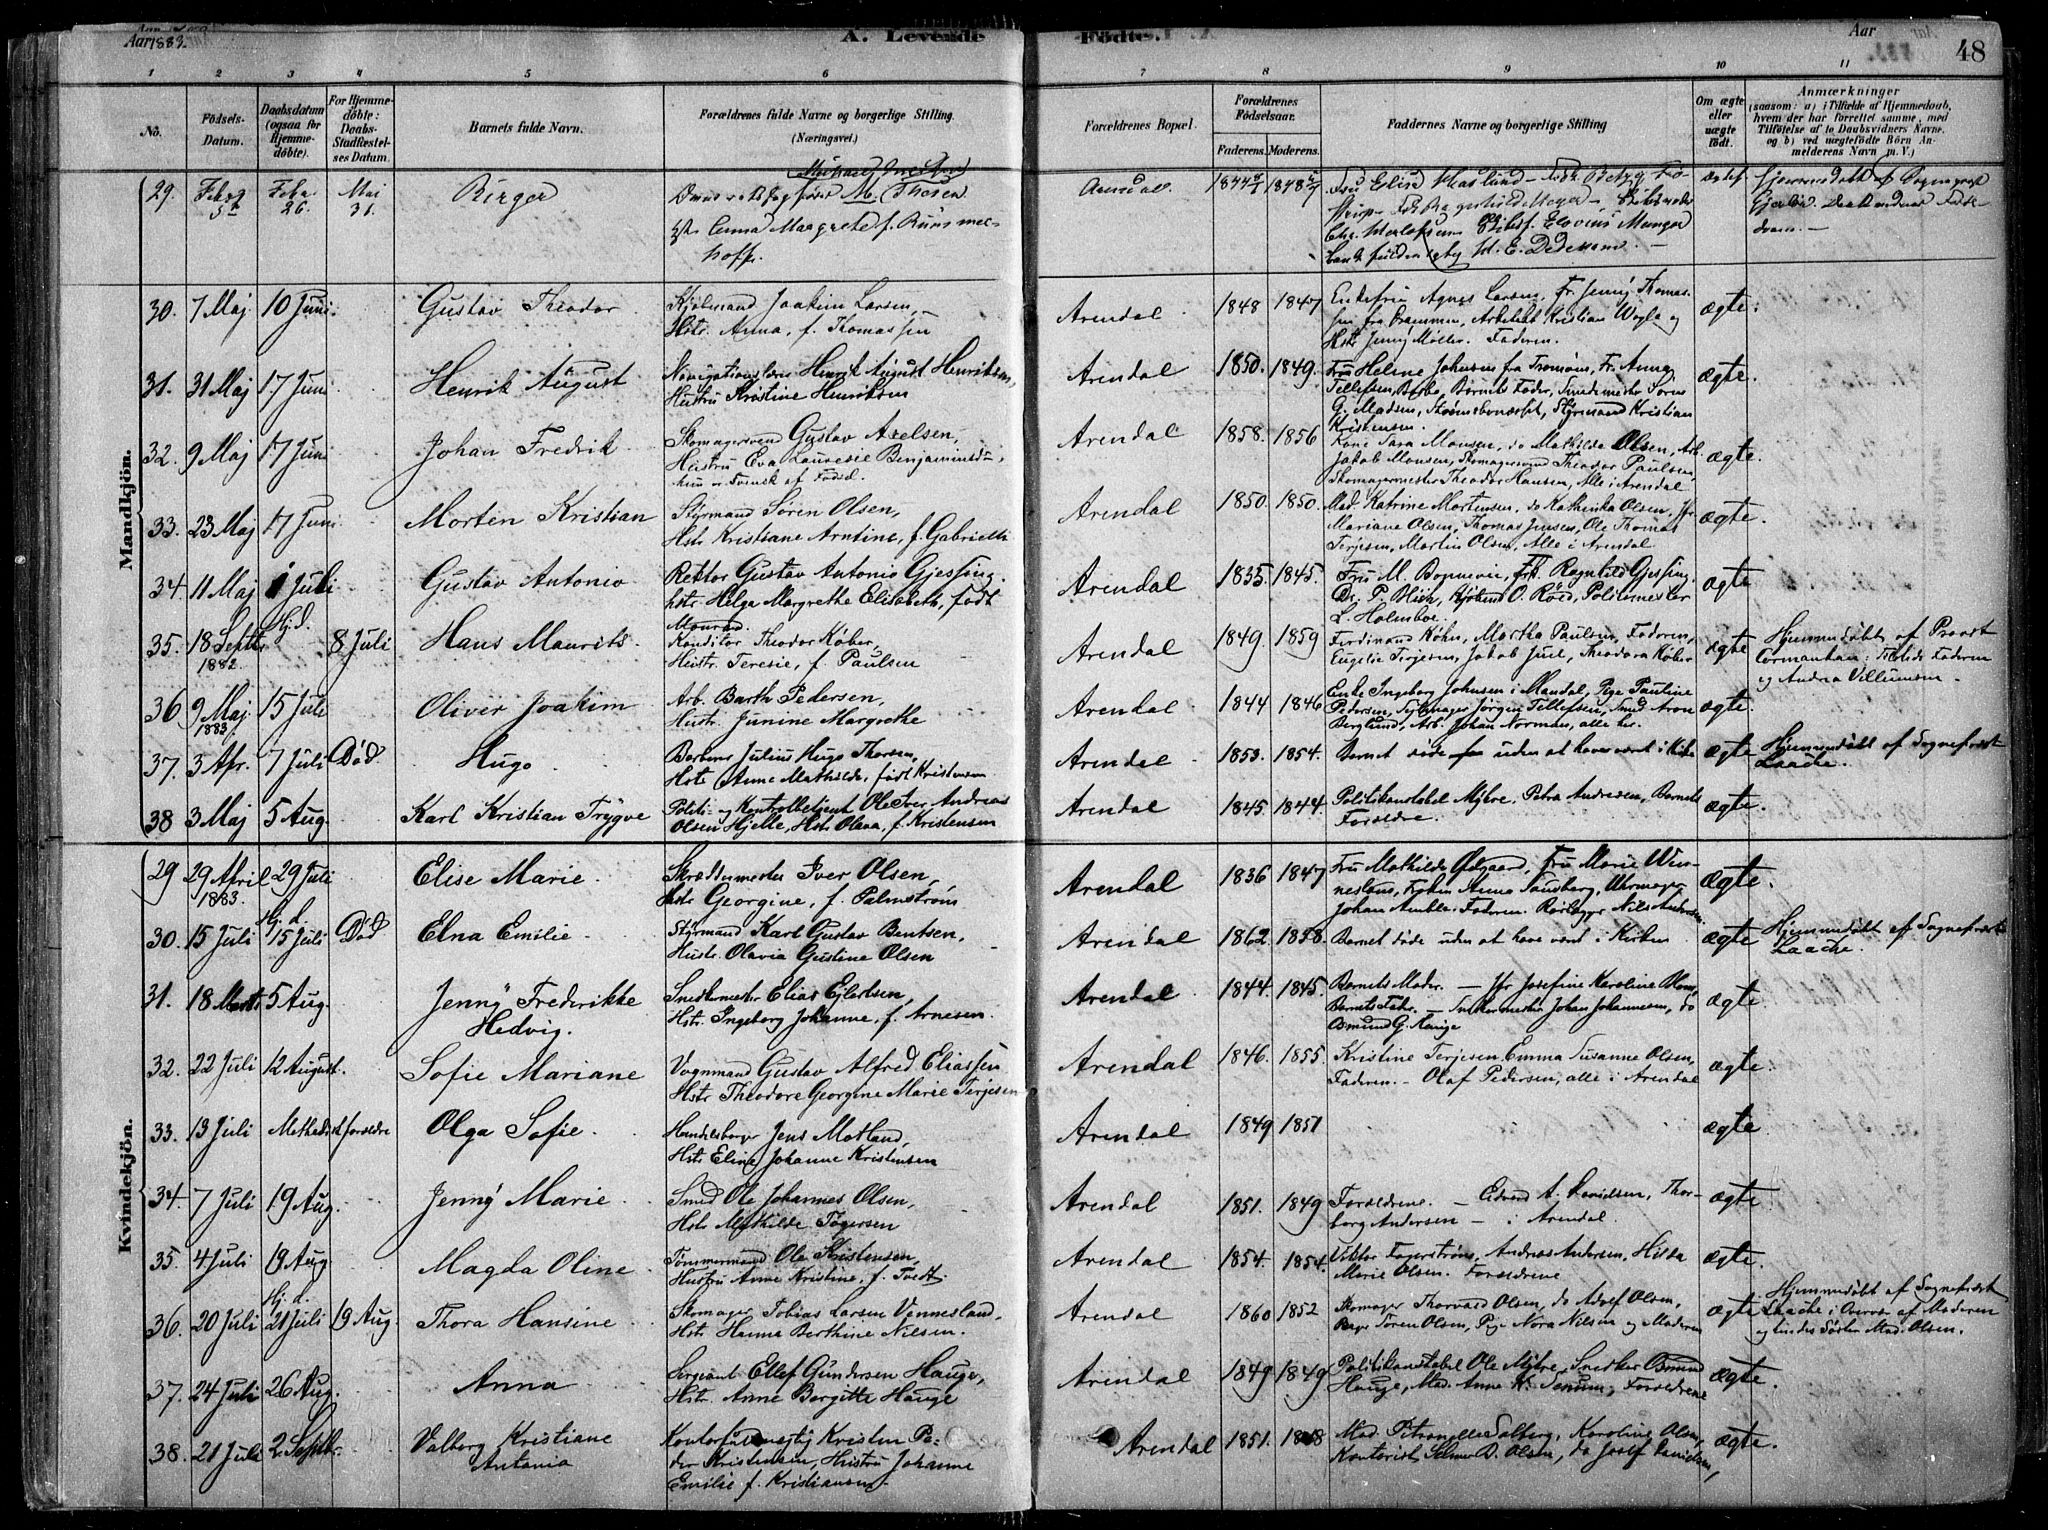 Aar 1883.
A. Levende
Födte.
Aar
48
1 2 3 4 5 6 7 8 9 10 11
No.
Födsels-
Datum.
Daabsdatum
(ogsaa for
Hjemme-
döbte).
For Hjemme-
döbte:
Daabs-
Stadfæstel-
ses Datum.
Barnets fulde Navn.
Forældrenes fulde Navne og borgerlige Stilling.
(Næringsvei.)
Forældrenes Bopæl.
Forældrenes
Födselsaar.
Faderens. Moderens.
Faddernes Navne og borgerlige Stilling
Om ægte
eller
uægte
födt.
Anmærkninger
(saasom: a) i Tilfælde af Hjemmedaab,
hvem der har forrettet samme, med
Tilföielse af to Daabsvidners Navne.
og b) ved uægtefödte Börn An-
melderens Navn m. V.)
Mandkjön.
29. Mai 31. Birger M. Thosen
Margrethe f.
Arendal
30. 7 Maj 10 Juni Gustav Theodor Joakim Larsen,
Hstr. Anna, f. Thomassen
Arendal 1848 1847 Enkefru Agnes Larsen, Fr. Jenny Thomas-
sen fra Drammen, Arkitekt Kristian og
Hstr Jenny Møller. Faderen. ægte.
31. 31 Maj 17 Juni Henrik August Navigationslærer Henrik August Henriksen,
Hustru Kristine Henriksen
Arendal 1850. 1849. Fru Helene Johnsen fra Tromøen, Fr. Anna
Tellefsen, Barnets Fader, Smedemester Søren
G. Madsen, Styrmand Kristian
Kristensen. ægte.
32. 9 Maj 17 Juni Johan Fredrik Skomagersvend Gustav Axelsen,
Hustru Eva Lauresie Benjaminsd.,
hun er Svensk af Fødsel.
Arendal 1858. 1856 Kone Sara Monsen, do Mathilde Olsen, Arb.
Jakob Monsen, Skomagersvend Theodor Paulsen,
Skomagermester Theodor Hansen, Alle i Arendal ægte.
33. 23 Maj 17 Juni Morten Kristian Styrmand Søren Olsen,
Hstr Kristiane Arntine, f. Gabrielli
Arendal 1850. 1850. Mad. Katrine Mortensen, do Kathinka Olsen, Jfr
Mariane Olsen, Thomas Jensen, Ole Thomas
Terjesen, Martin Olsen, Alle i Arendal ægte.
34 11 Maj 1 Juli Gustav Antonio Rektor Gustav Antonio Gjessing.
hstr. Helga Margrethe Elisabeth, født
Monrad.
Arendal 1835. 1845. Fru M. Frk. Ragnhild Gjessing.
Dr. P. Blich, O. Röed, Politimester
L. Holmboe. ægte
35. 18 Septbr. 1882 Hj.d. 8 Juli Hans Maurits. Konditor Theodor Køber,
Hustr. Teresie, f. Paulsen
Arendal 1849. 1859 Ferdinand Køhn, Martha Paulsen, Faderen,
Eugelie Terjesen, Jakob Juel, Theodora Køber ægte Hjemmedøbt af Provst
Faderen
og Andrea Villumsen.
36 9 Maj 1883. 15 Juli Oliver Joakim Arb. Barth Pedersen,
Hustr. Junine Margrethe
Arendal 1844 1846 Enke Ingeborg Johnsen i Mandal, Pige Pauline
Pedersen, Sejlmager Jørgen Tellefsen, Smed Aron
Berglund, Arb. Johan Norman, alle her. ægte.
37. 3 Apr. 7 Juli Död. Hugo. Barberer Julius Hugo Thorsen,
Hstr Anne Mathilde, født Kristensen
Arendal 1853. 1854. Barnet døde uden at have været i Kirke ægte Hjemmedøbt af Sognepræst
Laache.
38 3 Maj 5 Aug. Karl Kristian Trygve Politi- og Kontrolbetjent Ole Iver Andreas
Olsen Hjelle, Hstr Olava, f. Kristensen
Arendal 1845. 1844. Politikonstabel Myhre, Petra Andresen, Barnets
Forældre. ægte.
Kvindekjön.
29 29 April 1883. 29 Juli Elise Marie. Skræddermester Iver Olsen,
Hstr Georgine, f. Palmstrøm
Arendal 1836 1847 Fru Mathilde Ødgaard, Fru Marie Win-
Anna Tansberg, Uhrmager
Johan Faderen. Rørlægger Nils Andersen. ægte.
30. 15 Juli Hj. d. 15 Juli Död Elna Emilie. Styrmand Karl Gustav Bentsen,
Hustr. Olavia Gustine Olsen
Arendal 1862. 1858. Barnet døde uden at have været i Kirken ægte Hjemmedøbt af Sognepræst
Laache.
31. 18 Marts 5 Aug. Jenny Frederikke
Hedvig. Snedkermester Elias Ejlertsen,
Hstr. Ingeborg Johanne, f. Arnesen.
Arendal 1844. 1845. Barnets Moder. — Jfr Josefine Karoline
Barnets Fader. — Snedkermester Johan Johannesen, do
Osmund G. Hauge ægte
32. 22 Juli 12 August. Sofie Mariane Vognmand Gustav Alfred Eliassen
Hstr Theodore Georgine Marie Terjesen
Arendal 1846. 1855. Kristine Terjesen. Emma Susanne Olsen,
Faderen. — Olaf Pedersen, alle i Arendal ægte.
33. 13 Juli Methodistforældre Olga Sofie. Handelsborger Jens Motland,
Hstr Eline Johanne Kristensen
Arendal 1849 1851 ægte.
34. 7 Juli 19 Aug. Jenny Marie Smed Ole Johannes Olsen,
Hstr Mathilde Tøgersen
Arendal 1851. 1849 Forældrene. — Edvard A. Davidsen, Thor-
borg Andersen — i Arendal. ægte
35. 4 Juli 19 Aug Magda Oline Tømmermand Ole Kristensen,
Hustru Anne Kristine, f. Tvedt.
Arendal 1854. 1854. Viktor Fagerstrøm, Andreas Andersen, Hilda
Marie Olsen. Forældrene ægte.
36. 20 Juli Hj. d. 21 Juli 19 Aug. Thora Hansine Skomager Tobias Larsen Vennesland.
Hstr. Hanna Berthine Nilsen.
Arendal 1860 1852 Skomager Thorvald Olsen, do Adolf Olsen,
Søren Olsen, Pige Nora Nilsen og Moderen ægte Hjemmedøbt af Sognepræst
Laache i Overvær af Moderen
og Søster Mad. Olsen.
37. 24 Juli 26 Aug. Anna Sergeant Ellef Gundersen Hauge,
Hstr. Anne Borgitte Hauge
Arendal 1849 1849 Politikonstabel Ole Myhre, Snedker Osmund
Hauge, Mad. Anne K. Forældrene ægte.
38. 21 Juli 2 Septbr. Valborg Kristiane
Antonia Kontorfuldmægtig Kristen Pe-
der Kristensen, Hustru Johanne
Emilie f. Kristiansen
Arendal 1851. Mad. Petronelle Salberg, Karoline Olsen,
Kontorist Selmer D. Olsen, do Josef Danielsen, ægte.